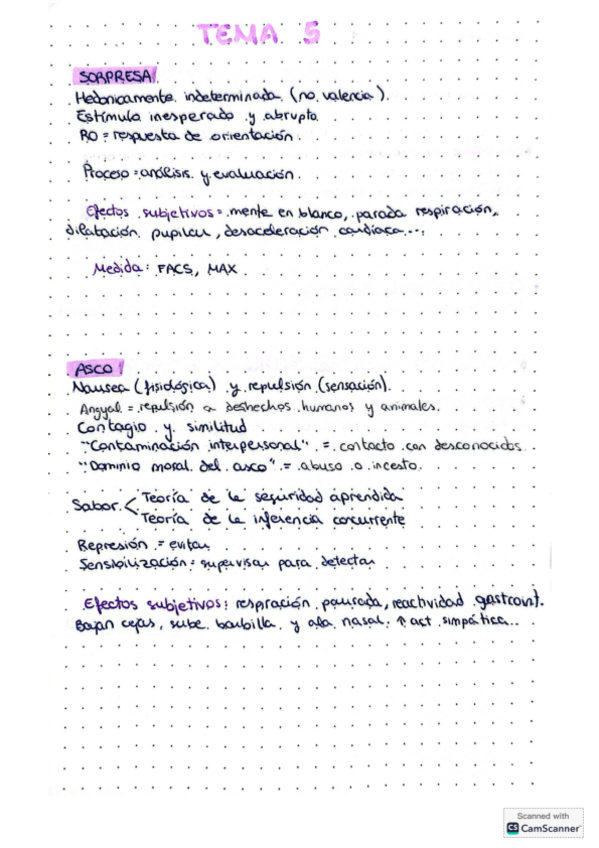 TEMA 5
SORPRESA
Hedonicamente indeterminada (no valencia).
Estímulo inesperado y abrupto
RO = respuesta de orientación
Proceso = análisis y evaluación
Efectos subjetivos = mente en blanco, parada respiración,
dilatación pupilar, desaceleración cardíaca...
Medida: FACS, MAX
ASCO
Nausea (fisiológica) y repulsión (sensación).
Angyal = repulsión a deshechos humanos y animales.
Contagio y similitud
"Contaminación interpersonal" = contacto con desconocidos
"Dominio moral del asco" = abuso o incesto.
Sabor < Teoría de la seguridad aprendida
Teoría de la inferencia concurrente
Represión = evitar
Sensibilización = supervisar para detectar
Efectos subjetivos: respiración pausada, reactividad gastroint.
Bajan cejas, sube barbilla y ala nasal, ↑ act simpática...
Scanned with
CS CamScanner